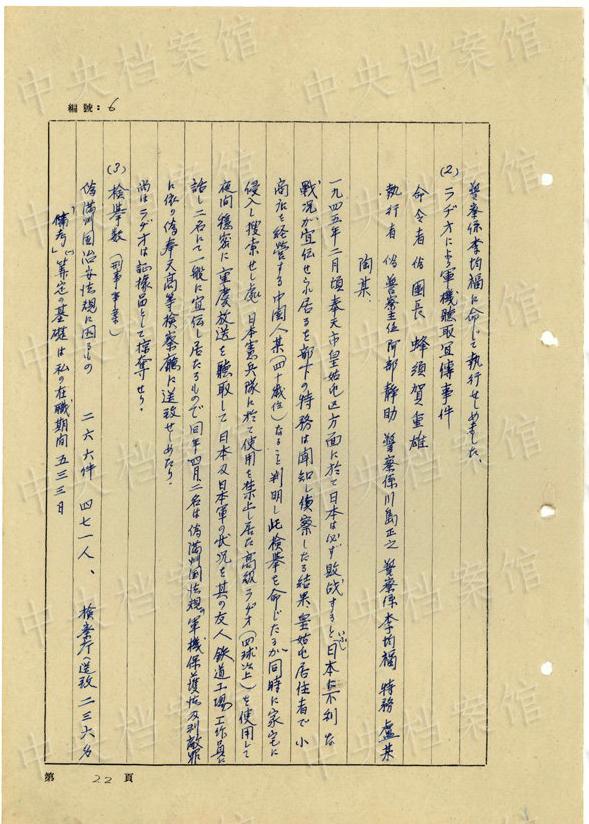 編號：6
警察係李均福に命じて執行せしめました、
(2) ラヂオによる軍機聴取宣傳事件
命令者 偽團長 蜂須賀重雄
執行者 偽警察主任 阿部靜助 警察係川島正之 警察係 李均福 特務 盧某
陶某.
一九四五年二月頃奉天市皇姑屯区方面に於て日本は必ず敗战すると日本に不利な
戦况が宣伝せられ居るを部下の特務は聞知し偵察したる結果、皇姑屯居住者で小
商店を経営する中國人某(四十歳位)なること判明し此検挙を命じたるが同時に家宅に
侵入し搜索せし處、日本憲兵隊に於て使用を禁止し居た高級ラヂオ(四球以上)を使用して
夜間穏密に重慶放送を聴取して日本及日本軍の状况を其の友人鉄道工場工作員に
話し二名にて一般に宣伝し居たるもので同年四月二名は偽満州国法规軍機保護法及利敵罪
に依り偽奉天高等検察廳に送致せしめたり.
尚ほラヂオは証據品として掠奪せり.
(3) 検挙数 (刑事事案)
偽満州国治安法規に因るもの 二六六件 四七一人、 検察庁へ送致 二三六名
「備考」 算定の基礎は私の在職期间五三三日
第 22 頁
中央档案馆